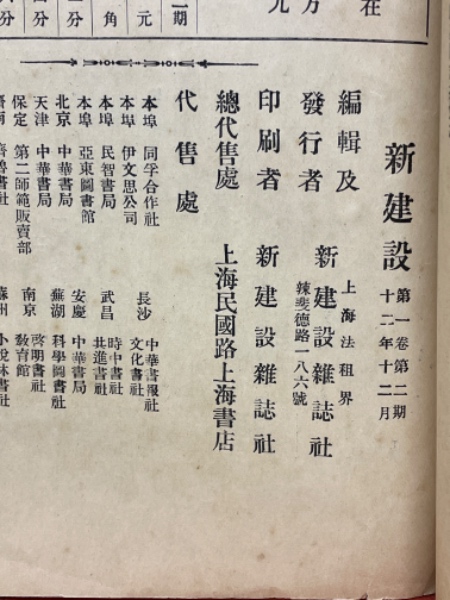 在
方
元
一期
元
角
一分
四分
分
新建設
第一卷第二期
十二年十二月
編輯及
發行者
上海法租界
新建設雜誌社
辣斐德路一八六號
印刷者
新建設雜誌社
總代售處
上海民國路上海書店
代售處
本埠 同孚合作社
本埠 伊文思公司
本埠 民智書局
本埠 亞東圖書館
北京 中華書局
天津 中華書局
保定 第二師範販賣部
濟南 齊魯書社
長沙 中華書報社
文化書社
武昌 時中書社
共進書社
安慶 中華書局
蕪湖 科學圖書社
南京 啓明書社
教育館
蘇州 小說林書社